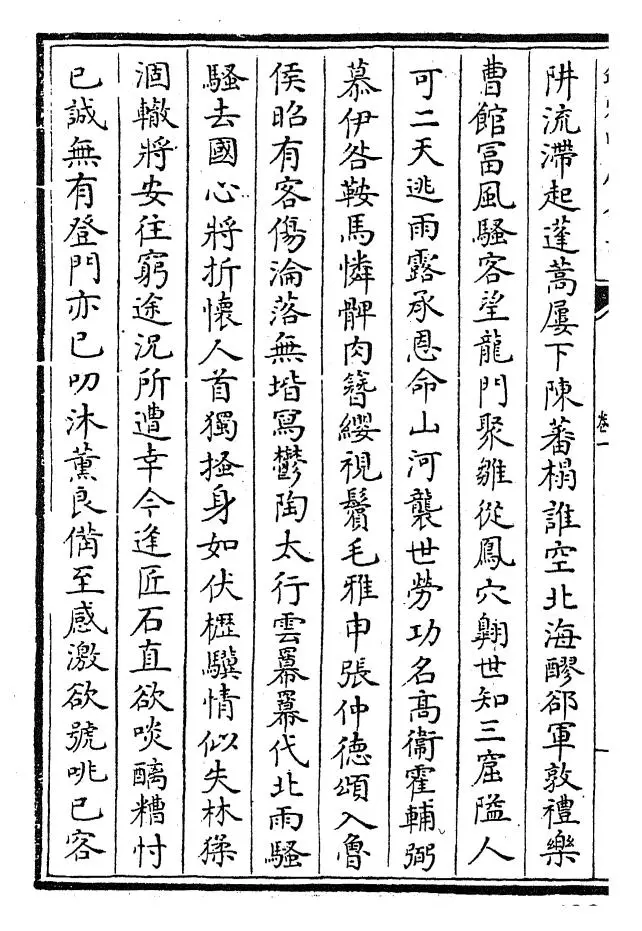 阱流滯起蓬蒿屢下陳蕃榻誰空北海醪郤軍敦禮樂
曹館富風騷客望龍門聚雛從鳳穴翺世知三窟隘人
可二天逃雨露承恩命山河襲世勞功名髙衞霍輔弼
慕伊咎鞍馬憐髀肉簪纓視鬢毛雅申張仲德頌入魯
侯昭有客傷淪落無堦寫鬱陶太行雲羃羃代北雨騷
騷去國心將折懷人首獨搔身如伏櫪驥情似失林猱
涸轍將安往窮途況所遭幸今逢匠石直欲啖醨糟忖
已誠無有登門亦已叨沐薰良備至感激欲號咷已容
卷一